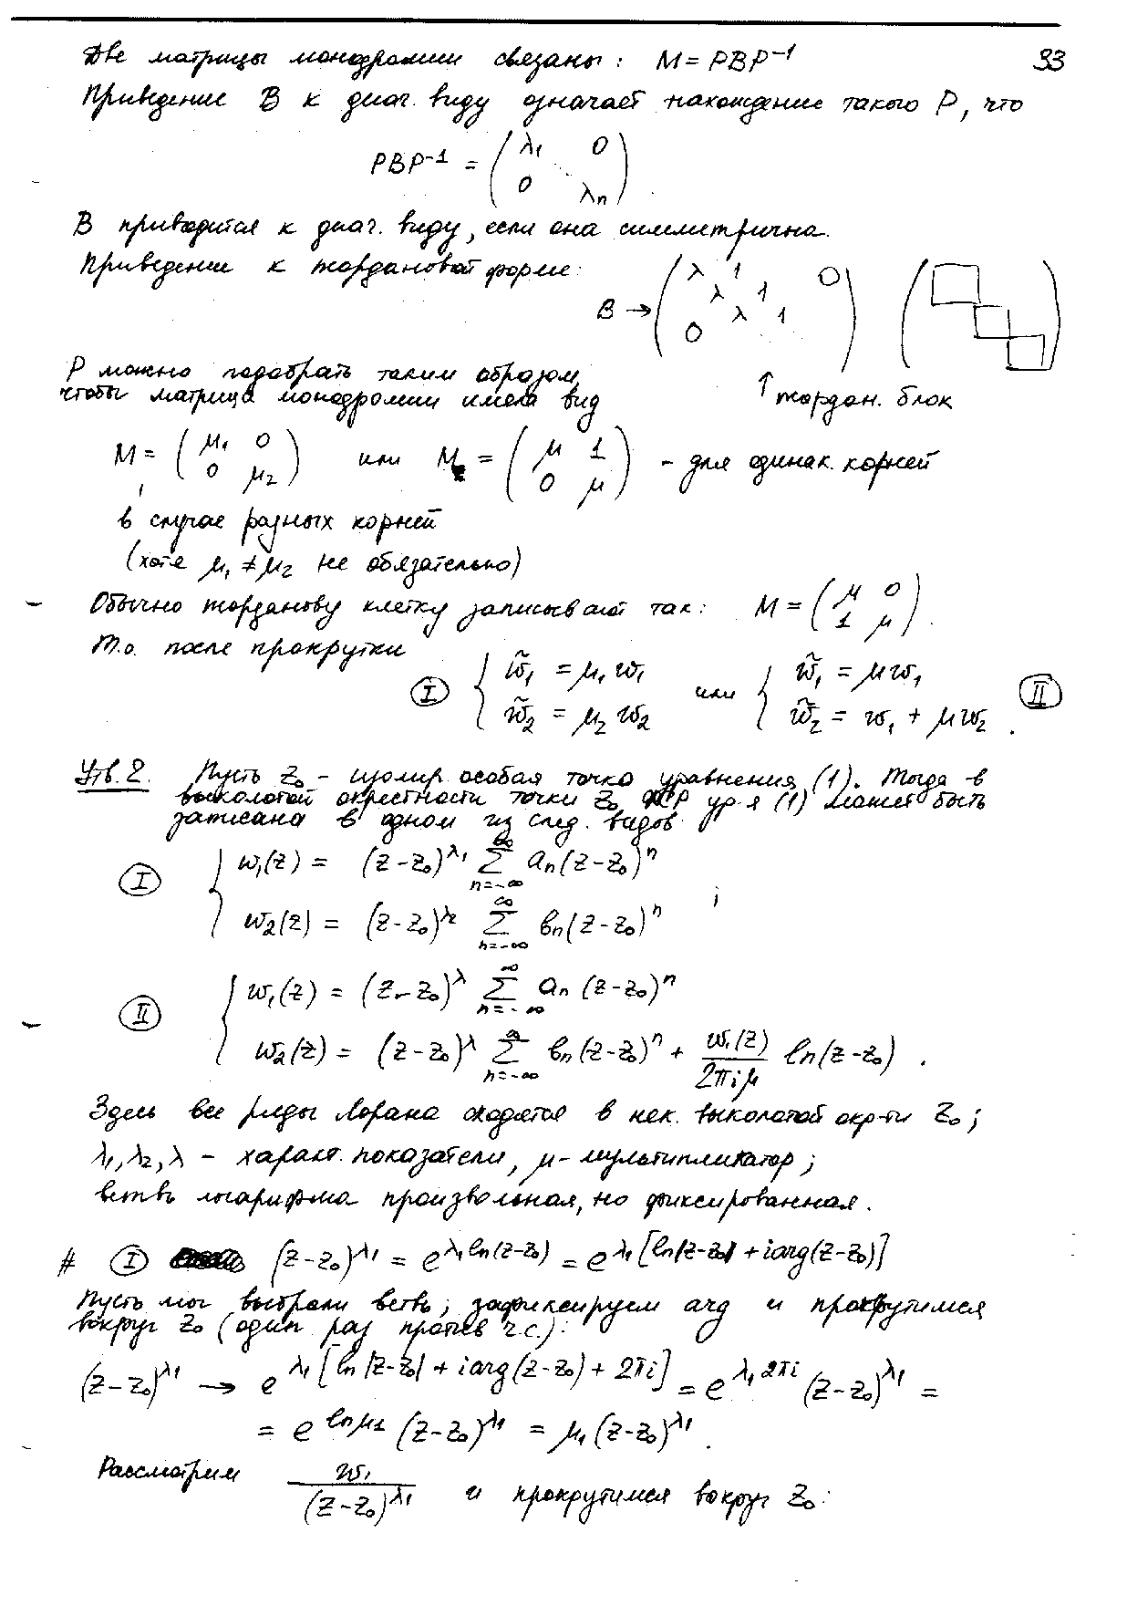 33
Две матрицы монодромии связаны: M = PBP⁻¹
Приведение B к диаг. виду означает нахождение такого P, что
PBP⁻¹ = ( λ₁ 0
0 λₙ ) .
B приводится к диаг. виду, если она симметрична.
Приведение к жордановой форме:
B → ( λ 1 0
λ 1
λ 1
0 )
P можно подобрать таким образом,
чтобы матрица монодромии имела вид
↑ жордан. блок
M = ( μ₁ 0
0 μ₂ ) или M = ( μ 1
0 μ ) – для одинак. корней
в случае разных корней
(хотя μ₁ ≠ μ₂ не обязательно)
Обычно жорданову клетку записывают так: M = ( μ 0
1 μ ) .
Т.о. после прокрутки
Ⅰ { w̃₁ = μ₁ w₁ или { w̃₁ = μ w₁ Ⅱ
w̃₂ = μ₂ w₂ w̃₂ = w₁ + μ w₂ .
Утв. 2. Пусть z₀ – изолир. особая точка уравнения (1). Тогда в
выколотой окрестности точки z₀ ФСР ур-я (1) может быть
записана в одном из след. видов
Ⅰ { w₁(z) = (z-z₀)^λ₁ ∑_{n=-∞}^{∞} aₙ(z-z₀)ⁿ
w₂(z) = (z-z₀)^λ₂ ∑_{n=-∞}^{∞} bₙ(z-z₀)ⁿ ;
Ⅱ { w₁(z) = (z-z₀)^λ ∑_{n=-∞}^{∞} aₙ(z-z₀)ⁿ
w₂(z) = (z-z₀)^λ ∑_{n=-∞}^{∞} bₙ(z-z₀)ⁿ + w₁(z)/2πiμ ln(z-z₀) .
Здесь все ряды Лорана сходятся в нек. выколотой окр-ти z₀;
λ₁, λ₂, λ – характ. показатели, μ – мультипликатор;
ветвь логарифма произвольная, но фиксированная.
# Ⅰ (z-z₀)^λ₁ = e^{λ₁ ln(z-z₀)} = e^{λ₁[ln|z-z₀| + i arg(z-z₀)]}
Пусть мы выбрали ветвь; зафиксируем arg и прокрутимся
вокруг z₀ (один раз против ч.с.):
(z-z₀)^λ₁ → e^{λ₁[ln|z-z₀| + i arg(z-z₀) + 2πi]} = e^{λ₁2πi} (z-z₀)^λ₁ =
= e^{ln μ₁} (z-z₀)^λ₁ = μ₁(z-z₀)^λ₁ .
Рассмотрим w₁/(z-z₀)^λ₁ и прокрутимся вокруг z₀: